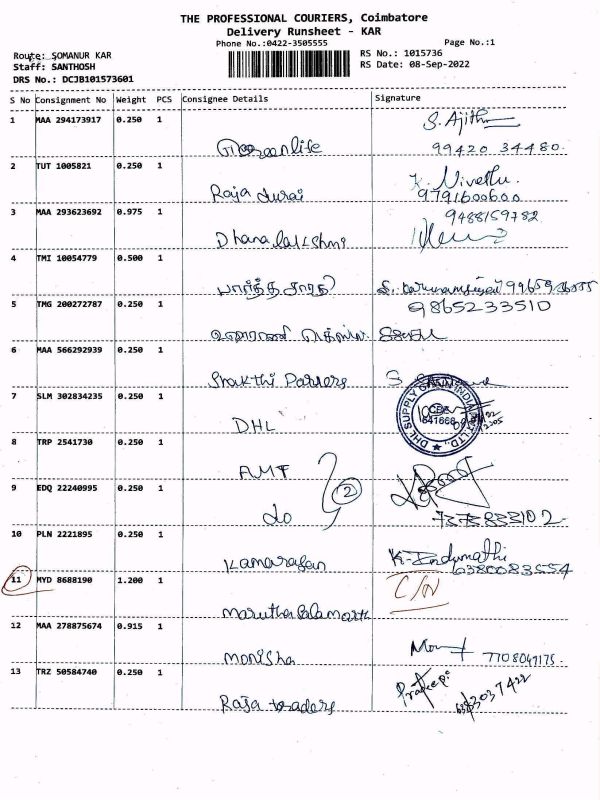 THE PROFESSIONAL COURIERS, Coimbatore
Delivery Runsheet - KAR
Phone No.:0422-3505555 Page No.:1
Route: SOMANUR KAR RS No.: 1015736
Staff: SANTHOSH RS Date: 08-Sep-2022
DRS No.: DCJB101573601
S No Consignment No Weight PCS Consignee Details Signature
1 MAA 294173917 0.250 1 S. Ajith
Greenlife 99420 34480.
2 TUT 1005821 0.250 1 K. Nivethu.
Raja durai 9791600600
3 MAA 293623692 0.975 1 9488159782
Dhanalakshmi
4 TMI 10054779 0.500 1
பார்த்த சாரதி
5 TMG 200272787 0.250 1 9865233510
6 MAA 566292939 0.250 1
Shakthi S
7 SLM 302834235 0.250 1
DHL
DHL SUPPLY CHAIN INDIA PVT. LTD.,
CBE
641668
8 TRP 2541730 0.250 1
AMT
2
9 EDQ 22240995 0.250 1
do 7373833102.
10 PLN 2221895 0.250 1
Kamarajan K. Indumathi
6380083554
11 MYD 8688190 1.200 1 C/N
12 MAA 278875674 0.915 1
Monisha 7708047175.
13 TRZ 50584740 0.250 1 Pradeep
Raja traders